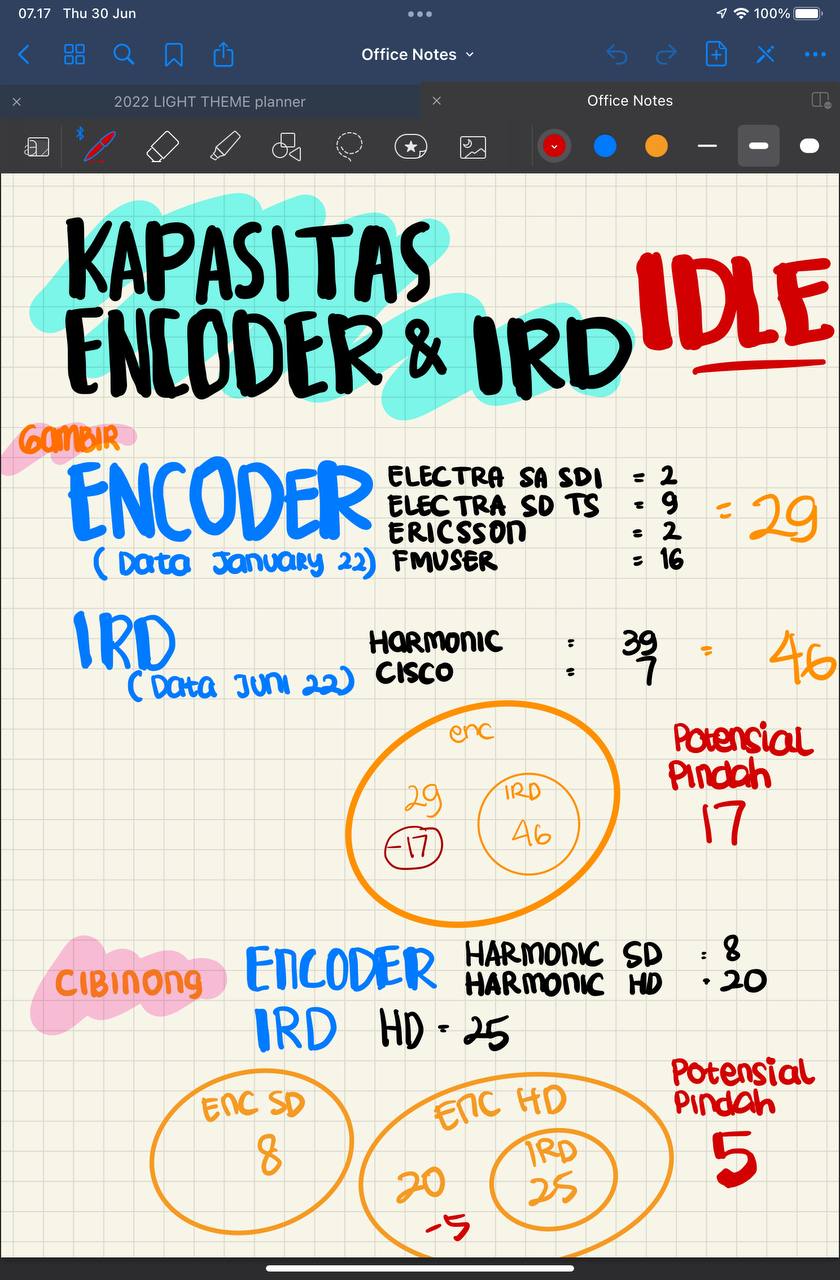 07.17 Thu 30 Jun
100%
Office Notes
2022 LIGHT THEME planner
Office Notes
KAPASITAS
ENCODER & IRD
IDLE
GAMBIR
ENCODER
(Data January 22)
ELECTRA SA SDI = 2
ELECTRA SD TS = 9
ERICSSON = 2
FMUSER = 16
= 29
IRD
(Data Juni 22)
HARMONIC : 39
CISCO = 7
= 46
enc
29
-17
IRD
46
Potensial
Pindah
17
CIBINONG
ENCODER
HARMONIC SD : 8
HARMONIC HD · 20
IRD HD = 25
Potensial
Pindah
5
ENC SD
8
ENC HD
20
-5
IRD
25